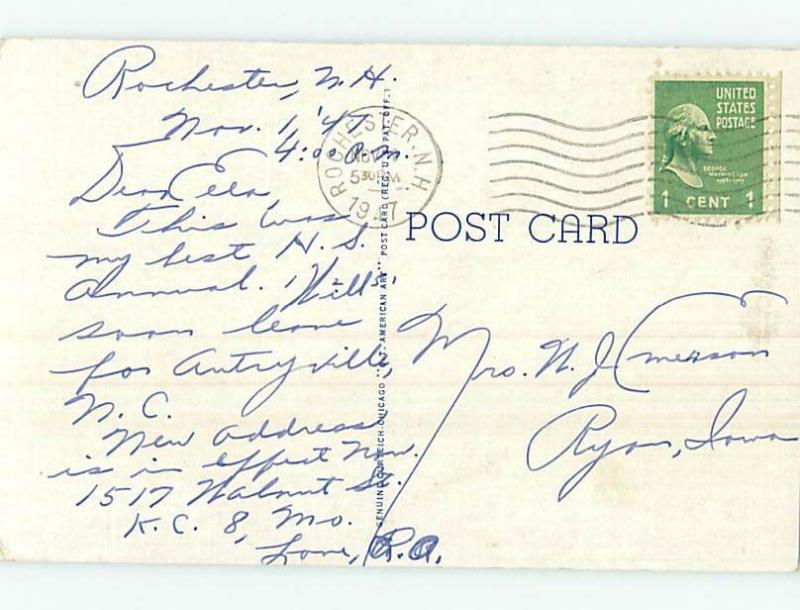 Rochester, N.H.
Nov. 1, '47
4:00 P.m.
Dear Ella,
This was
my best H.S.
Annual. Will
soon leave
for Autryville,
N.C.
New address
is in effect now.
1517 Walnut St.
K.C. 8, Mo.
Love, R.A.
ROCHESTER, N.H.
NOV
530 PM
1947
UNITED
STATES
POSTAGE
GEORGE
WASHINGTON
1 CENT 1
POST CARD
GENUINE CURTEICH-CHICAGO "C.T. AMERICAN ART" POST CARD (REG. U.S. PAT. OFF.)
Mrs. W. J. Emerson
Ryan, Iowa